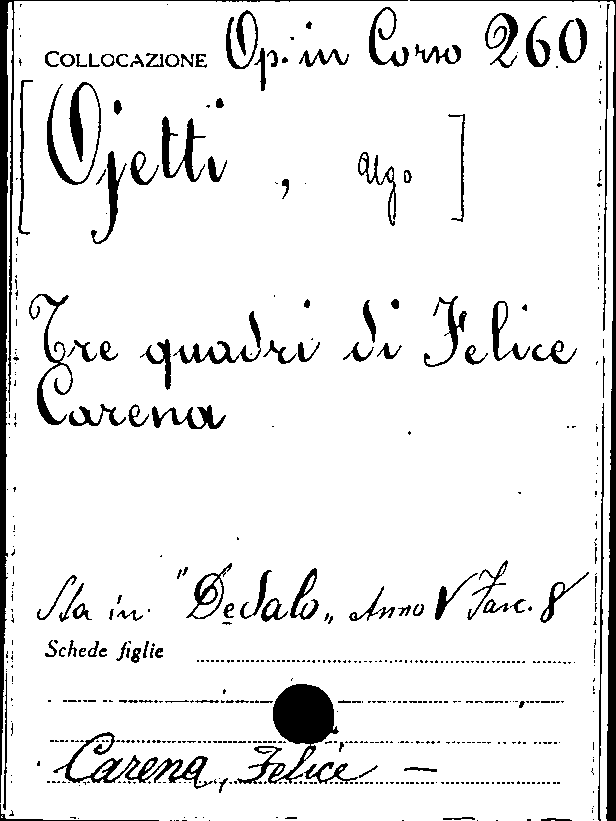 COLLOCAZIONE Op. in Corso 260
[Ojetti, Ugo]
Tre quadri di Felice
Carena
Sta in "Dedalo„ Anno V Fasc. 8
Schede figlie
Carena, Felice —